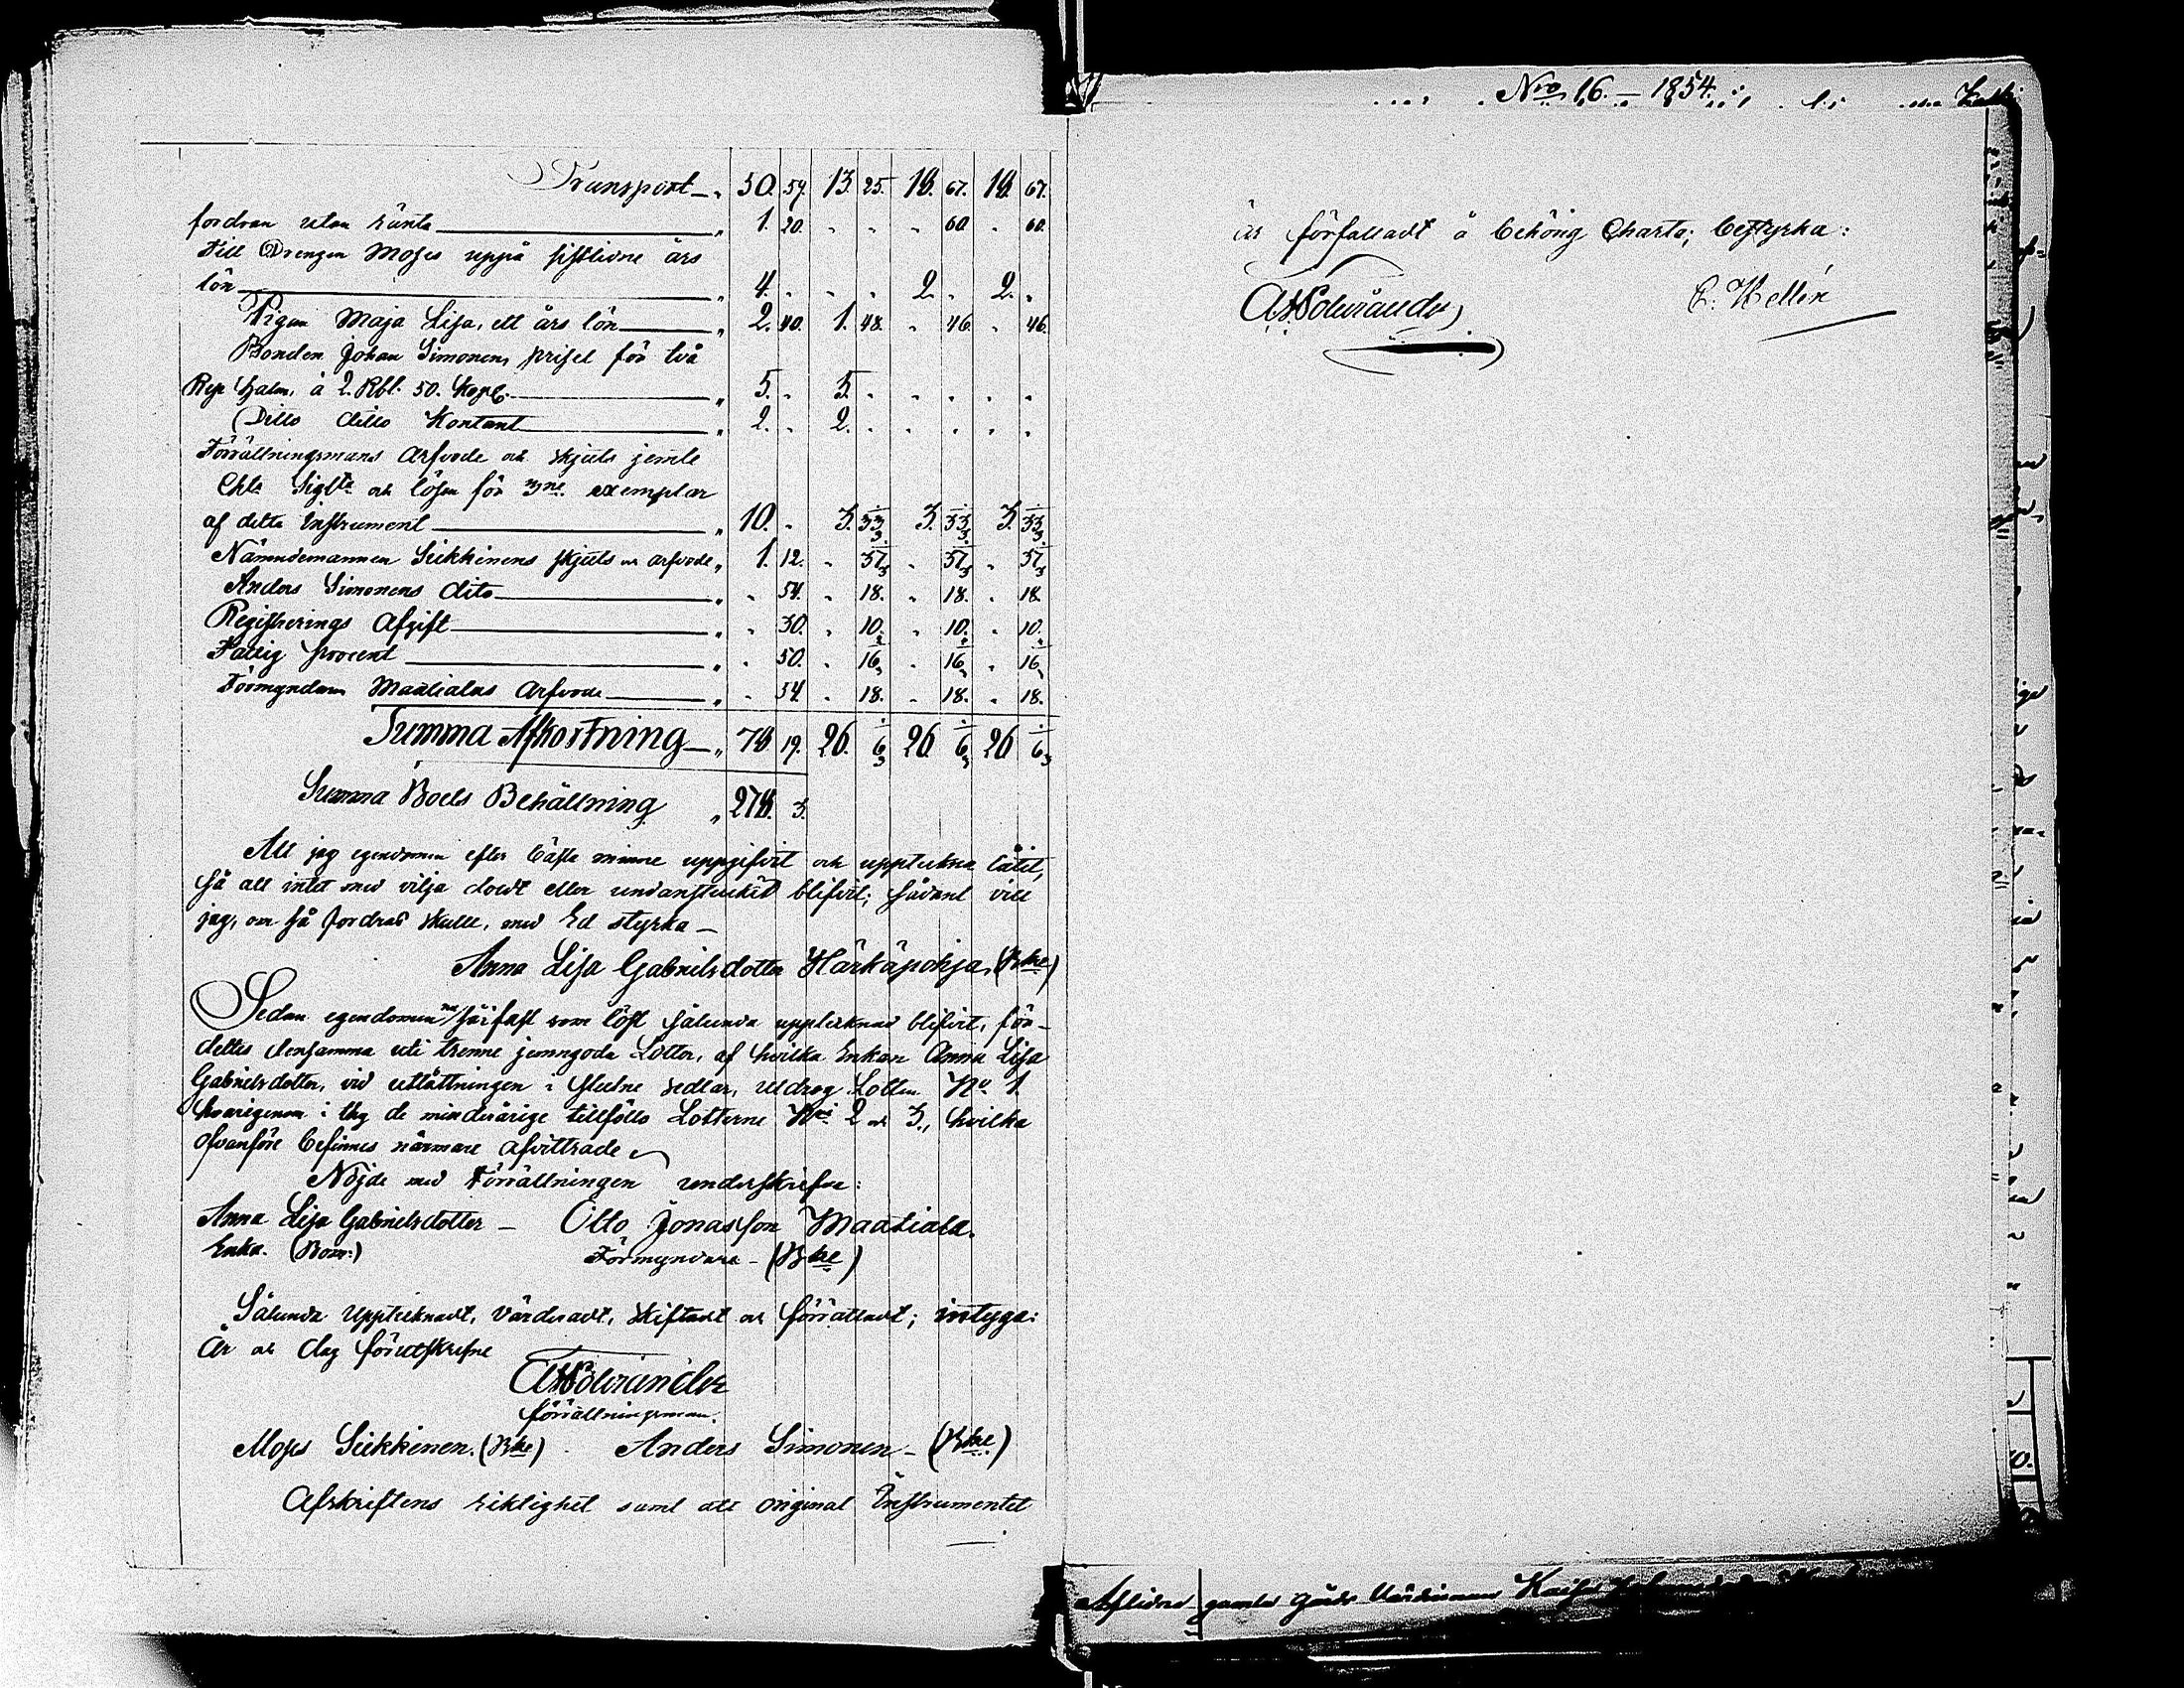 Transport — „ 50. 59. 13. 25. 18. 67. 18. 67.
fordran utan ränta „ 1. 20. „ „ „ 60 „ 60.
Till Drengen Moses uppå sistlidne års
lön „ 4. „ „ „ 2. „ 2. „
Pigan Maja Lisa, ett års lön „ 2. 40. 1. 48. „ 46. „ 46.
Bonden Johan Simonens priset för två
halm, à 2. Rbl. 50. Kop. „ 5. „ 5. „ „ „ „ „
Ditto ditto Kontant „ 2. „ 2. „ „ „ „ „
Förrättningsmans Arfvode och skjuts jemte
Chta Sigilta och lösen för 3ne exemplar
af detta Instrument „ 10. „ 3. 33 3. 33 3. 33
Nämndemannen Siikkinens skjuts och arfvode „ 1. 12. „ 37 „ 37 „ 37
Anders Simonens dito „ „ 54. „ 18. „ 18. „ 18.
Registrerings Afgift „ „ 30. „ 10. „ 10. „ 10.
Fattig procent „ „ 50. „ 16 „ 16 „ 16
Förmyndaren Maatialas Arfvode „ „ 54 „ 18. „ 18. „ 18.
Summa Afkortning „ 78 19. 26. 6 26 6 26 6
Summa Boets Behållning „ 278. 3.
Att jag egendomen efter bästa minne uppgifvit och uppteckna låtit,
så att intet med vilja doldt eller undanstuckit blifvit; sådant vill
jag, om så fordras skulle, med Ed styrka —
Anna Lisa Gabrielsdotter Härkäpohja (Bkre)
Sedan egendomen såväl fast som löst sålunda upptecknad blifvit, för-
deltes densamma uti trenne jemngoda Lotter, af hvilka Enkan Anna Lisa
Gabrielsdotter, vid utlottningen i slutne sedlar, utdrog Lotten No 1.
hvarigenom de minderårige tillföllo Lotterne Nri 2 och 3., hvilka
ofvanföre befinnes närmare afvittrade
Nöjde med Förrättningen underskrifva:
Anna Lisa Gabrielsdotter — Otto Jonasson Maatiala.
Enka. (Bom:) Förmyndare — (Bkre)
Sålunda Upptecknadt, Värderadt, skiftadt och förrättadt; intyga:
År och dag förutskrefne
förrättningsman.
Moses Siikkinen. (Bkre) Anders Simonen — (Bkre)
Afskriftens riktighet samt att original Instrumentet
Nro 16. — 1854.
är författadt å behörig Charta; bestyrka:
E. Hellén
Aflidne gamla Gårds Värdinnan Kaisa